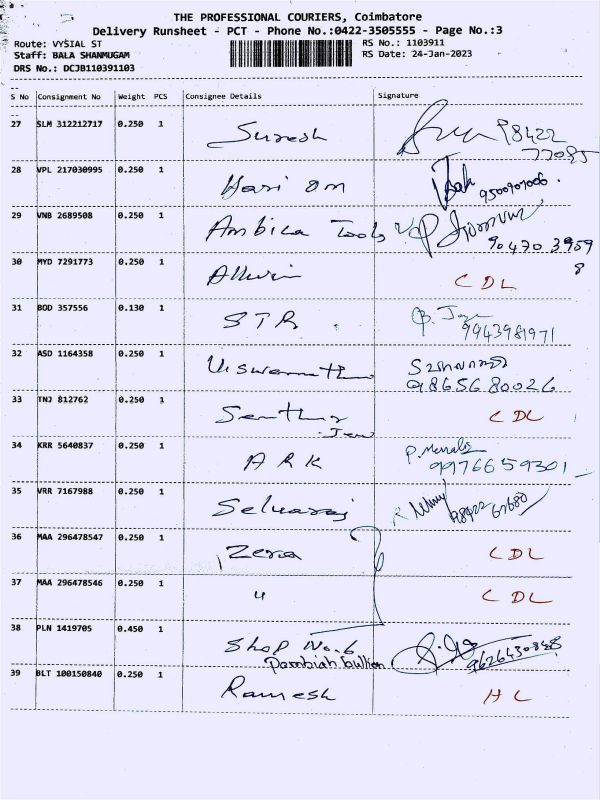 THE PROFESSIONAL COURIERS, Coimbatore
Delivery Runsheet - PCT - Phone No.:0422-3505555 - Page No.:3
Route: VYSIAL ST
RS No.: 1103911
Staff: BALA SHANMUGAM
RS Date: 24-Jan-2023
DRS No.: DCJB110391103
S No Consignment No Weight PCS Consignee Details Signature
27 SLM 312212717 0.250 1 Suresh 98422
77085
28 VPL 217030995 0.250 1 Hari om
29 VNB 2689508 0.250 1 Ambica Tools
90470 3959
8
30 MYD 7291773 0.250 1 Allwin CDL
31 BOD 357556 0.130 1 STR
9943981971
32 ASD 1164358 0.250 1 Viswanathan
98656 80026
33 TNJ 812762 0.250 1 CDL
34 KRR 5640837 0.250 1 ARK
99766 59301
35 VRR 7167988 0.250 1 Selvaraj
36 MAA 296478547 0.250 1 Zeroa CDL
37 MAA 296478546 0.250 1 " CDL
38 PLN 1419705 0.450 1 Shop No.6
39 BLT 100150840 0.250 1 Ramesh HC